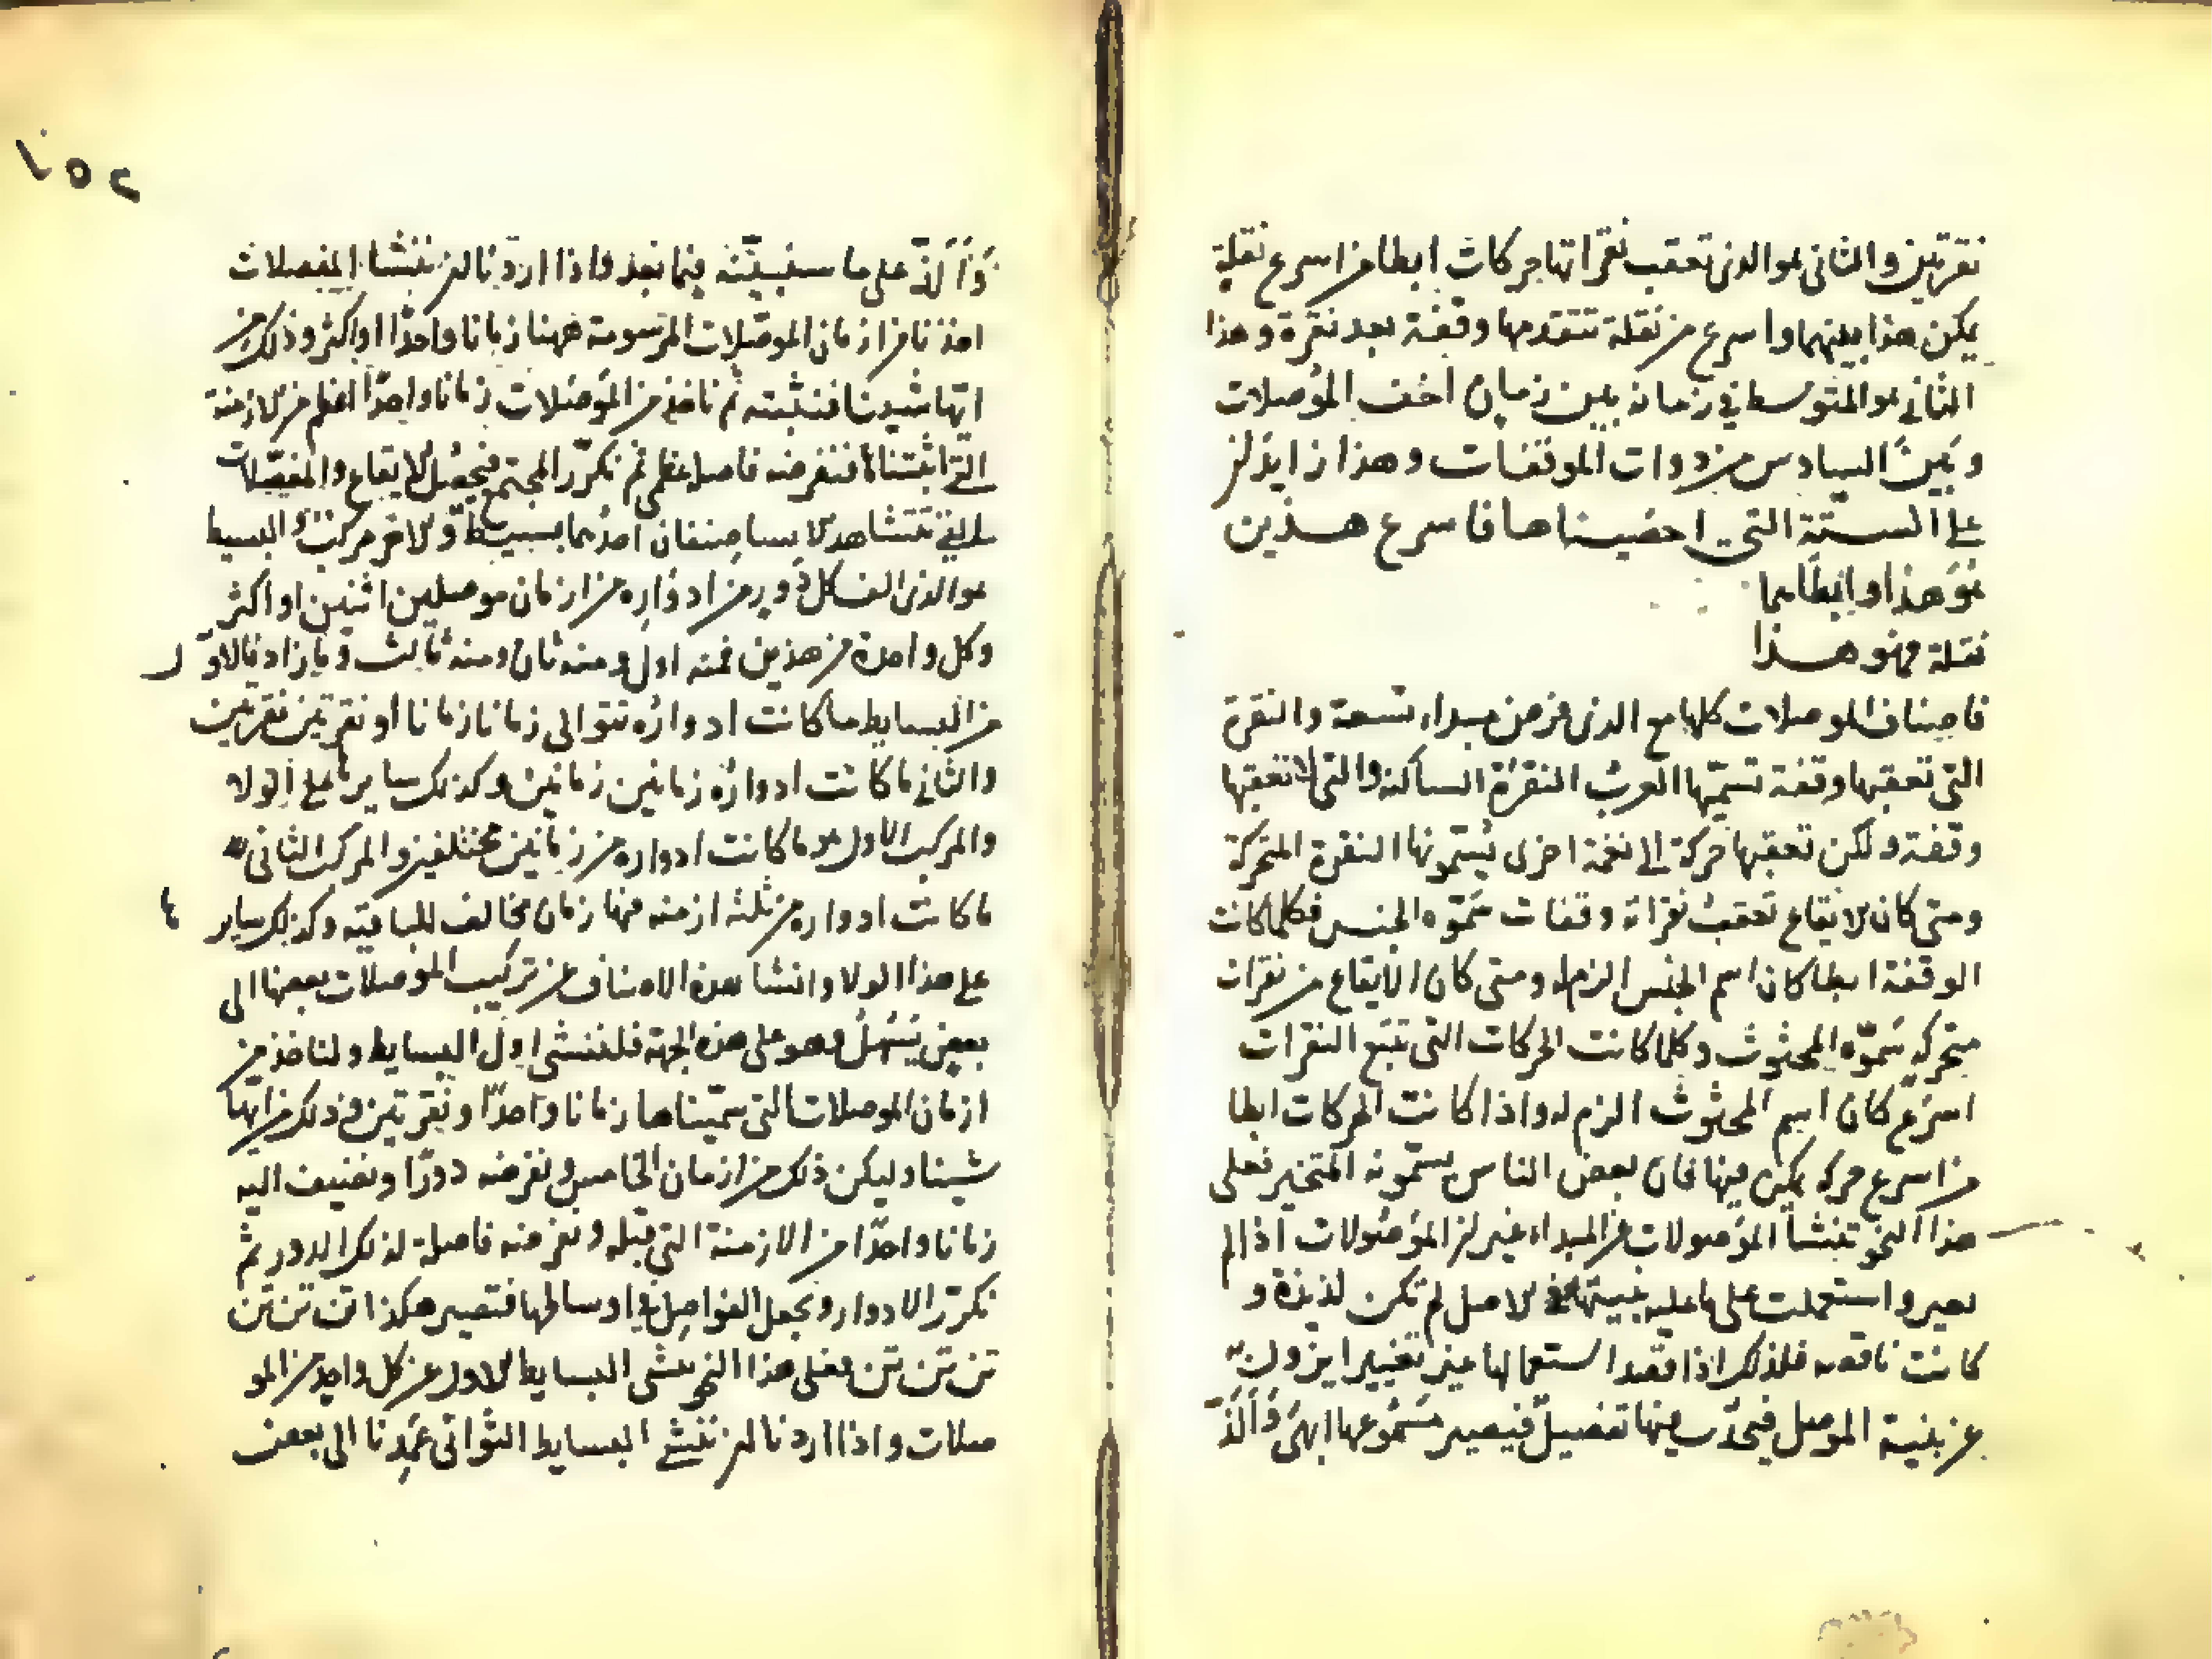 نقرتين والثاني هو الذي تعقب نقراتها حركات ابطا من اسرع نقلة
يمكن هذا بينهما واسرع من نقلة تتقدمها وقفة بعد نقرة وهذا
الثاني هو المتوسط في زمانه بين زمان اخف الموصلات
وبين السادس من ذوات الموقفات وهذا زايد لنا
على الستة التي احصيناها فاسرع هذين
هو هذا وابطاهما
نقلة فهو هذا
فاصناف الموصلات كلها مع الذي فرض مبداء تسعة والنقرة
التي تعقبها وقفة تسميها العرب النقرة الساكنة والتي لا تعقبها
وقفة ولكن تعقبها حركة الى نغمة اخرى يسمونها النقرة المتحركة
ومتى كان الايقاع تعقب نقراته وقفات سموه الجنس فكلما كانت
الوقفة ابطا كان اسم الجنس الزم له ومتى كان الايقاع من نقرات
متحركة سموه المحثوث وكلما كانت الحركات التي تتبع النقرات
اسرع كان اسم المحثوث الزم له واذا كانت الحركات ابطا
من اسرع حركة يمكن فيها فان بعض الناس يسمونه المتخير فعلى
هذا النحو تنشأ الموصولات عن المبداء غير ان الموصولات اذا لم
واستعملت على ما عليه بنيتها في الاصل لم تكن لذيذة و
كانت ناقصة فلذلك اذا قصد استعمالها غير تغييرا يزول به
عن بنية الموصل فيحدث فيها تفصيل فيصير مسموعها ابهى وألذ
وألذ على ما سنبينه فيما بعد واذا اردنا ان ننشا المفصلات
اخذنا من ازمان الموصلات المرسومة ههنا زمانا واحدا او اكثر وذلك من
ايها شينا فنثبته ثم ناخذ من الموصلات زمانا واحدا اعظم من الازمنة
التي اثبتناها فنفرضه فاصلة عظمى ثم نكرر المجتمع فيحصل الايقاع والمفصلات
صنفان احدهما بسيط والاخر مركب والبسيط
هو الذي الف كل دور من ادواره من ازمان موصلين اثنين او اكثر
وكل واحدة من هذين فمنه اول ومنه ثان ومنه ثالث وما زاد فالاول
من البسايط ما كانت ادواره تتوالى زمانا زمانا او نقرتين نقرتين
والثاني ما كانت ادواره زمانين زمانين وكذلك سايرها على الولاء
والمركب الاول هو ما كانت ادواره من زمانين مختلفين والمركب الثاني هو
ما كانت ادواره من ثلثة ازمنة فيها زمان مخالف للباقية وكذلك سايرها
على هذا الولا وانشا هذه الاصناف عن تركيب الموصلات بعضها الى
بعض يسهل وهو على هذه الجهة فلننشى اول البسايط ولناخذ من
ازمان الموصلات التي سميناها زمانا واحدا ونقرتين وذلك من ايها
شينا وليكن ذلك من ازمان الخامس ونفرضه دورا ونضيف اليه
زمانا واحدا من الازمنة التي قبله ونفرضه فاصلة لذلك الدور ثم
نكرر الادوار ونجعل الفواصل في اوساطها فتصير هكذا تن تن تن
تن تن تن فعلى هذا النحو ننشى البسايط الاول عن كل واحد من المو
صلات واذا اردنا ان ننشئ البسايط الثواني عمدنا الى بعض